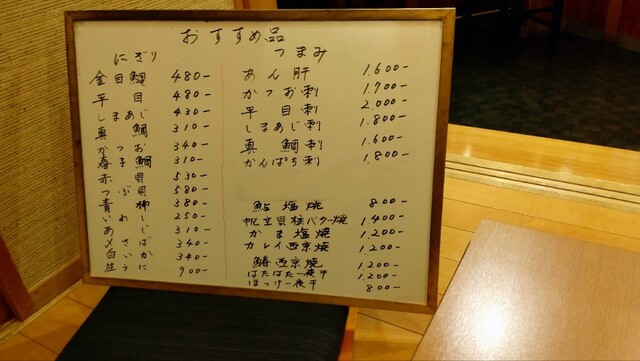 おすすめ品
にぎり
金目鯛 480-
平目 480-
しまあじ 430-
真鯛 310-
かつお 340-
春子鯛 310-
赤貝 530-
つぶ貝 580-
青柳 380-
いわし 250-
あじ 310-
〆さば 340-
白いか 340-
生うに 900-
つまみ
あん肝 1.600-
かつお刺 1.700-
平目刺 2.000-
しまあじ刺 1.800-
真鯛刺 1.600-
かんぱち刺 1.800-
鮎塩焼 800-
帆立貝柱バター焼 1.400-
かま塩焼 1.200-
カレイ西京焼 1.200-
西京焼 1.200-
はたはた一夜干 1.200-
ほっけ一夜干 800-